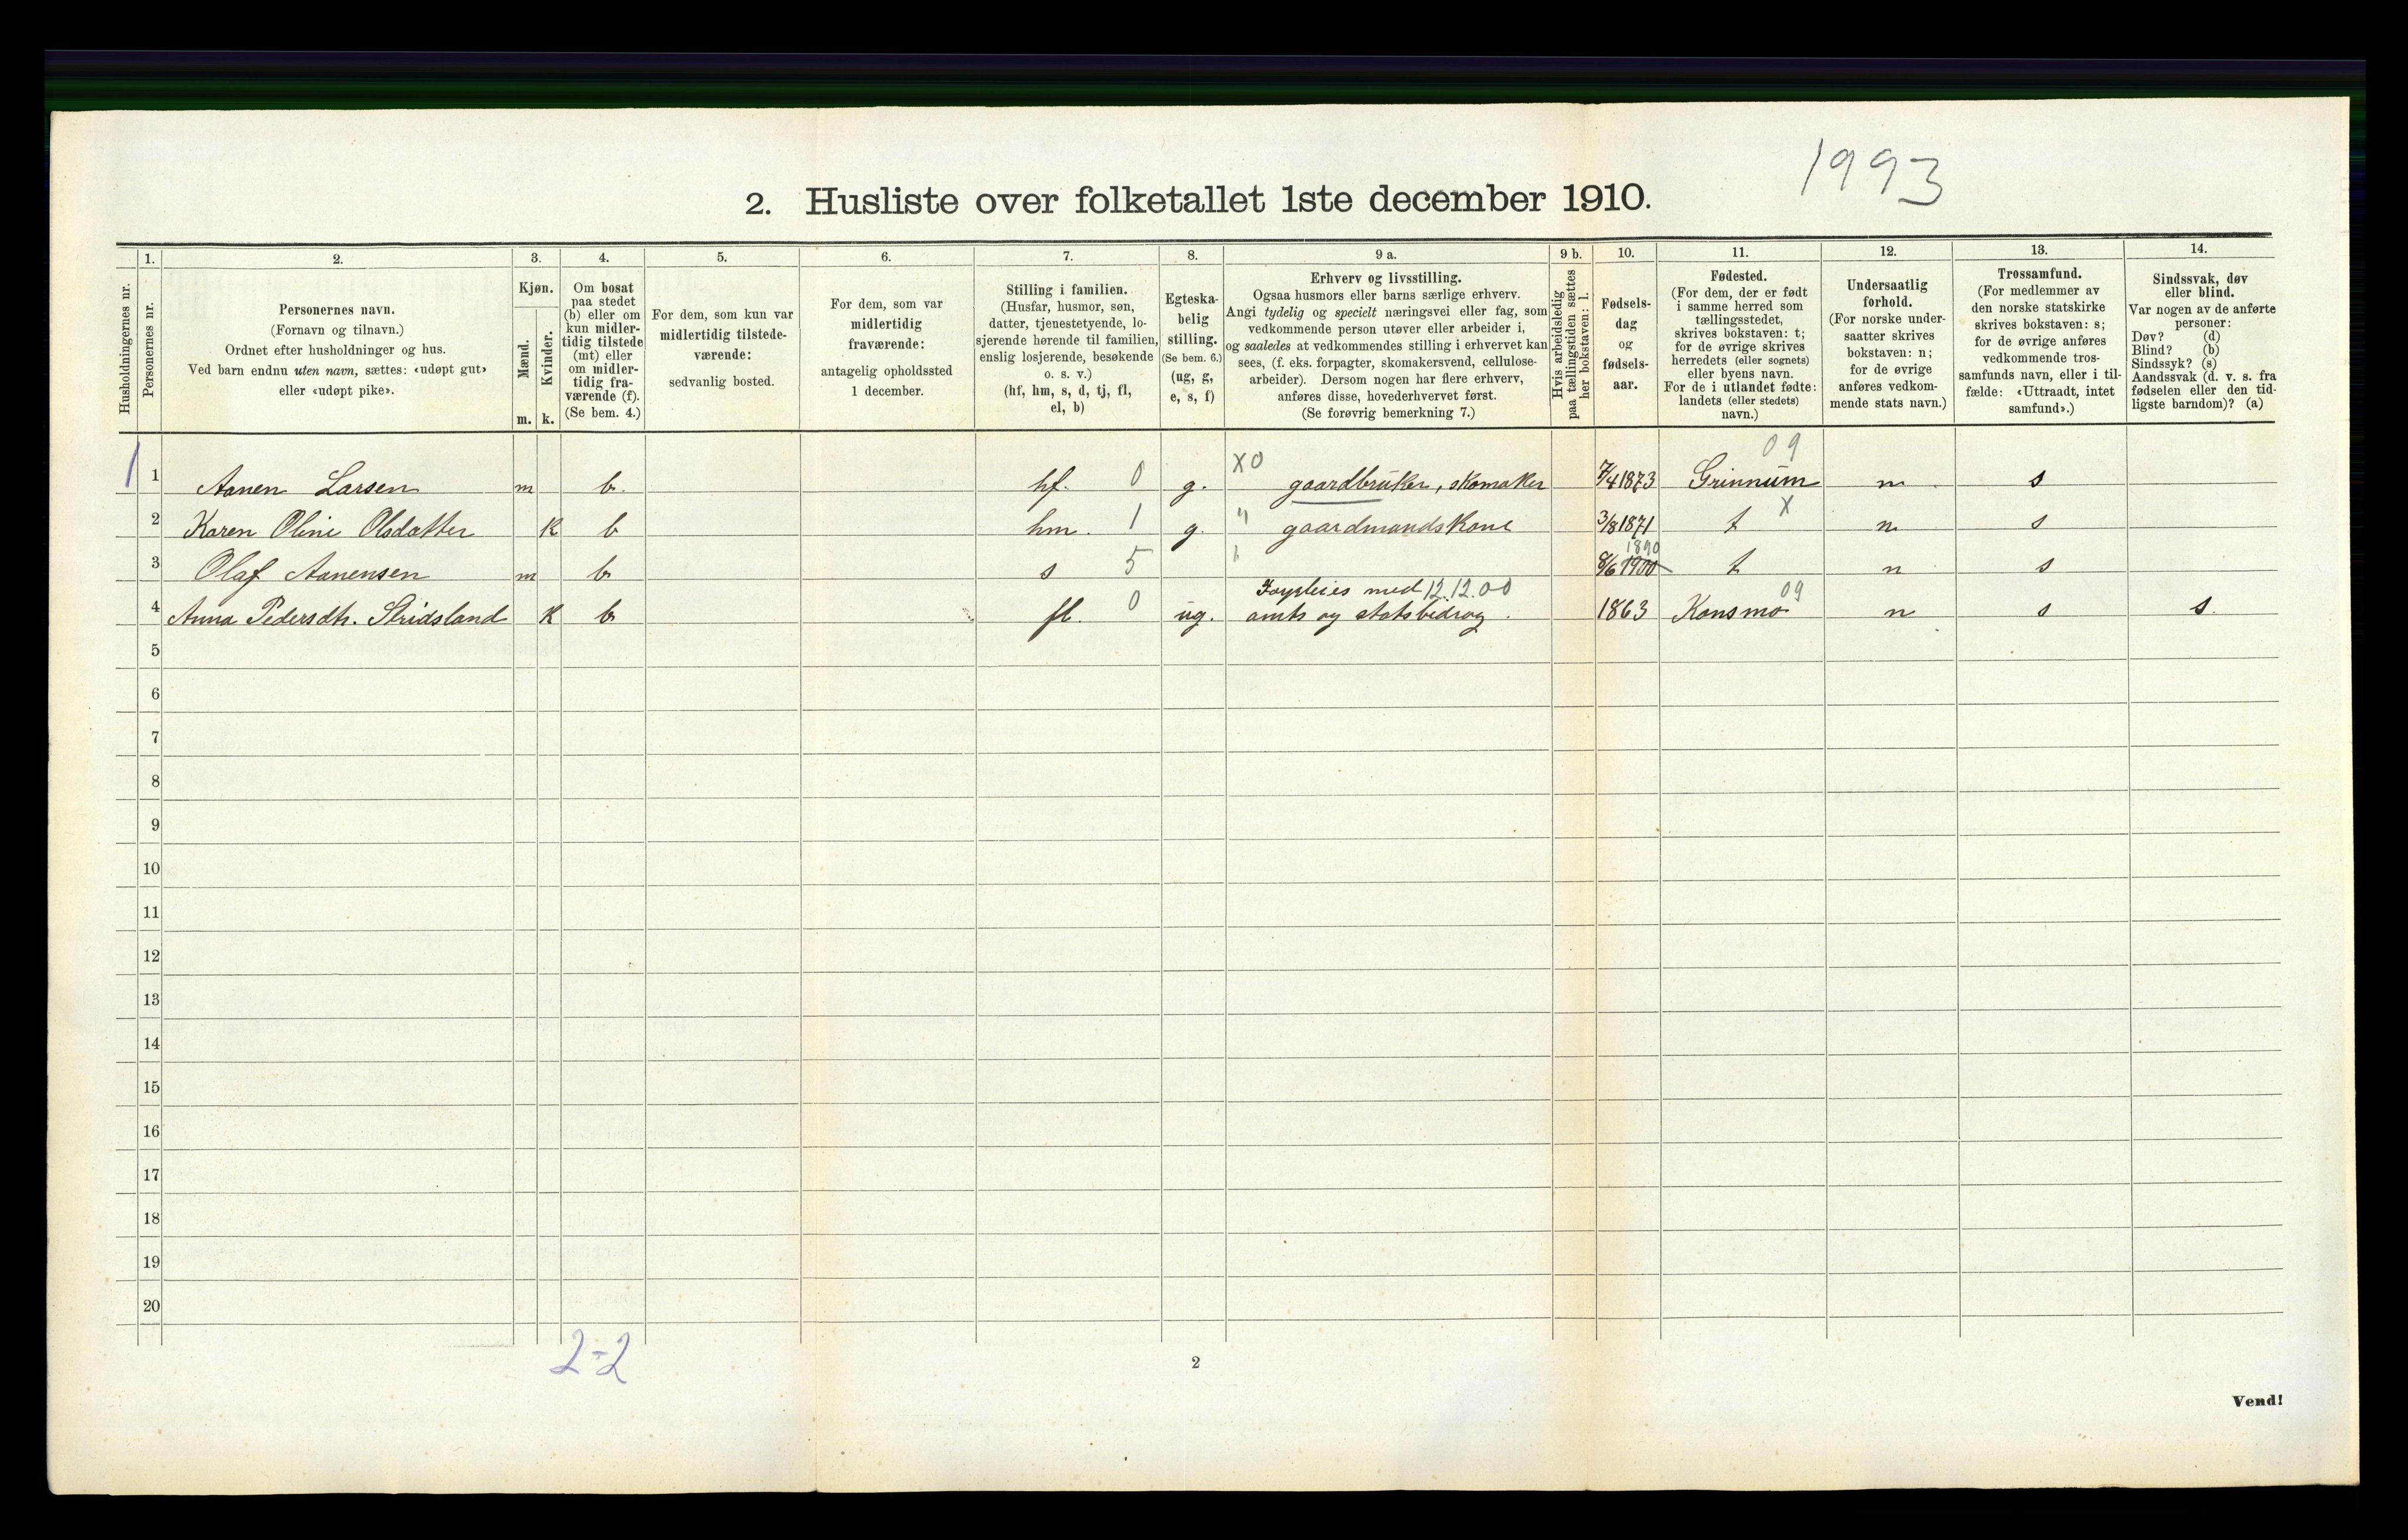 1993
2. Husliste over folketallet 1ste december 1910.
Husholdningernes nr.
1.
Personernes nr.
2.
Personernes navn.
(Fornavn og tilnavn.)
Ordnet efter husholdninger og hus.
Ved barn endnu uten navn, sættes: «udøpt gut»
eller «udøpt pike».
3.
Kjøn.
Mænd.
Kvinder.
m. k.
4.
Om bosat
paa stedet
(b) eller om
kun midler-
tidig tilstede
(mt) eller
om midler-
tidig fra-
værende (f).
(Se bem. 4.)
5.
For dem, som kun var
midlertidig tilstede-
værende:
sedvanlig bosted.
6.
For dem, som var
midlertidig
fraværende:
antagelig opholdssted
1 december.
7.
Stilling i familien.
(Husfar, husmor, søn,
datter, tjenestetyende, lo-
sjerende hørende til familien,
enslig losjerende, besøkende
o. s. v.)
(hf, hm, s, d, tj, fl,
el, b)
8.
Egteska-
belig
stilling.
(Se bem. 6.)
(ug, g,
e, s, f)
9 a.
Erhverv og livsstilling.
Ogsaa husmors eller barns særlige erhverv.
Angi tydelig og specielt næringsvei eller fag, som
vedkommende person utøver eller arbeider i,
og saaledes at vedkommendes stilling i erhvervet kan
sees, (f. eks. forpagter, skomakersvend, cellulose-
arbeider). Dersom nogen har flere erhverv,
anføres disse, hovederhvervet først.
(Se forøvrig bemerkning 7.)
9 b.
Hvis arbeidsledig
paa tællingstiden sættes
her bokstaven: l.
10.
Fødsels-
dag
og
fødsels-
aar.
11.
Fødested.
(For dem, der er født
i samme herred som
tællingsstedet,
skrives bokstaven: t;
for de øvrige skrives
herredets (eller sognets)
eller byens navn.
For de i utlandet fødte:
landets (eller stedets)
navn.)
12.
Undersaatlig
forhold.
(For norske under-
saatter skrives
bokstaven: n;
for de øvrige
anføres vedkom-
mende stats navn.)
13.
Trossamfund.
(For medlemmer av
den norske statskirke
skrives bokstaven: s;
for de øvrige anføres
vedkommende tros-
samfunds navn, eller i til-
fælde: «Uttraadt, intet
samfund».)
14.
Sindssvak, døv
eller blind.
Var nogen av de anførte
personer:
Døv? (d)
Blind? (b)
Sindssyk? (s)
Aandssvak (d. v. s. fra
fødselen eller den tid-
ligste barndom)? (a)
X0 09
1 1 Aanen Larsen m b. hf. 0 g. gaardbruker, skomaker 7/4 1873 Grinnum n s
2 Karen Oline Olsdatter k b hm. 1 g. " gaardmandskone 3/8 1871 t X n s
1890
3 Olaf Aanensen m b s 5 " 8/6 1900 t n s
Forpleies med 12.12.00 09
4 Anna Pedersdtr. Stridsland k b fl. 0 ug. amts og statsbidrag. 1863 Konsmo n s s.
5
6
7
8
9
10
11
12
13
14
15
16
17
18
19
20
2-2
2
Vend!